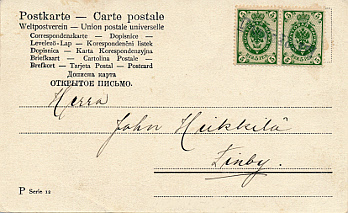 Postkarte – Carte postale
Weltpostverein – Union postale universelle
Correspondenzkarte – Dopisnice –
Levelező-Lap – Korespondenční lístek
Dopisnica – Karta Korespondencyjna
Briefkaart – Cartolina Postale –
Brefkort – Tarjeta Postal – Postcard
Дописна карта
ОТКРЫТОЕ ПИСЬМО.
Herra
John Heikkilä
Finby.
P Serie 12